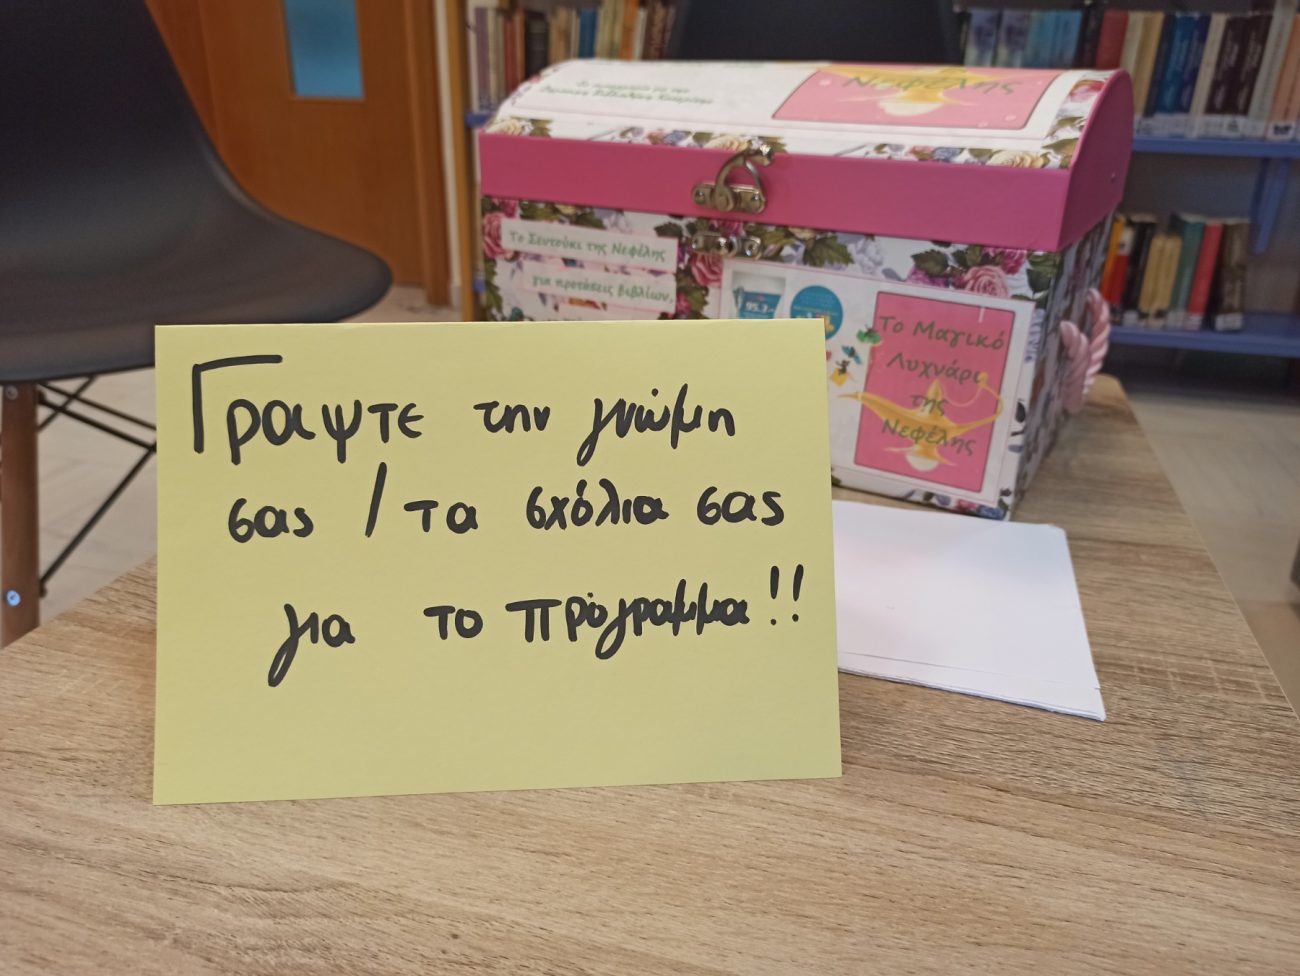 Νεφέλης
Το Σεντούκι της Νεφέλης
για προτάσεις βιβλίων,
95.7
Το Μαγικό
Λυχνάρι
της
Νεφέλης
Γραψτε την γνώμη
σας / τα σχόλια σας
για το πρόγραμμα!!